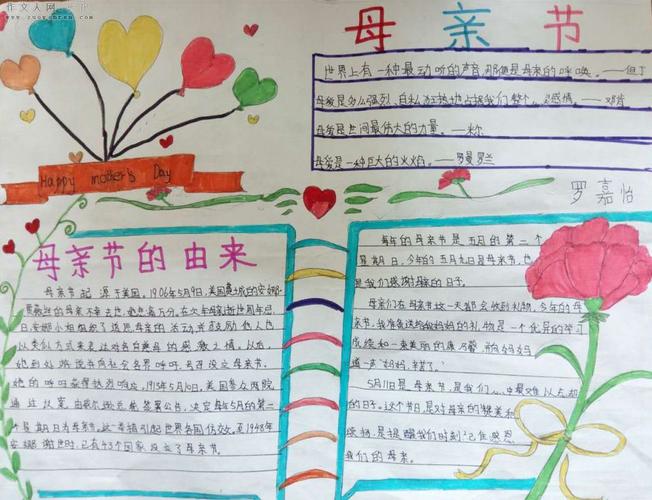 作文人网
母亲节
世界上有一种最动听的声音,那便是母亲的呼唤。——但丁
母爱是多么强烈、自私、狂热地占据我们整个心灵的感情。——邓肯
母爱是世间最伟大的力量。——米尔
母爱是一种巨大的火焰。——罗曼·罗兰
Happy mother's Day
罗嘉怡
母亲节的由来
母亲节起源于美国。1906年5月9日,美国费城的安娜
的母亲不幸去世,她悲痛万分。在次年母亲逝世周年忌
日,安娜小姐组织了追思母亲的活动,并鼓励他人也
以类似方式来表达对各自慈母的感激之情。从此,
她到处游说并向社会各界呼吁,号召设立母亲节。
她的呼吁获得热烈响应。1913年5月10日,美国参众两院
通过议案,由威尔逊总统签署公书,决定每年5月的第二
个星期日为母亲节。这一举措引起世界各国仿效。至1948年
安娜谢世时,已有43个国家设立了母亲节。
每年的母亲节是五月的第二个
星期日,今年的五月九日是母亲节,也
是我们感谢母亲的日子。
母亲们在母亲节这一天都会收到礼物,今年的母
亲节,我准备送给妈妈的礼物是一个优异的学习
成绩和一束美丽的康乃馨,向妈妈
道一声"妈妈,辛苦了。"
5月11日是母亲节,是我们 中最难以忘怀
的日子。这个节日是对母亲的赞美和
颂扬,是提醒我们时刻记住感恩
我们的母亲。